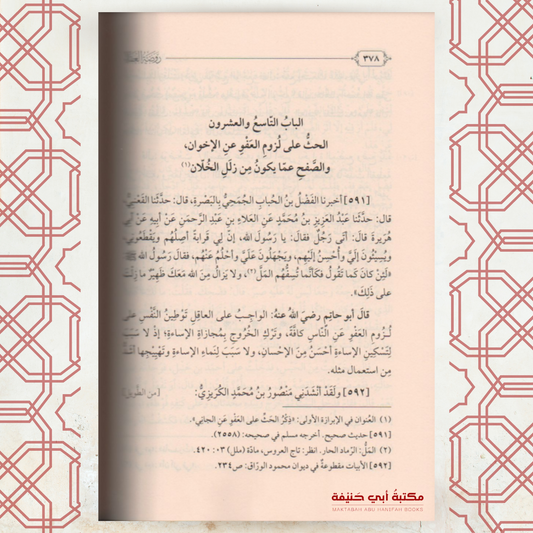 ٣٧٨
روضة العقلاء
البابُ التّاسعُ والعشرون
الحثُّ على لُزومِ العَفْوِ عنِ الإخوان،
والصَّفحِ عمّا يكونُ مِن زلَلِ الخُلّان(١)
[٥٩١] أخبرنا الفَضْلُ بنُ الحُبابِ الجُمَحِيُّ بالبَصْرةِ، قال: حدَّثنا القَعْنَبيُّ،
قال: حدَّثنا عبدُ العَزيزِ بنُ مُحمَّدٍ عنِ العَلاءِ بنِ عبدِ الرَّحمنِ عَنْ أبيهِ عَنْ أبي
هُرَيرةَ قالَ: أتَى رَجُلٌ فقالَ: يا رَسولَ الله، إنَّ لي قَرابةً أصِلُهُم ويَقْطَعوني،
ويُسِيئُونَ إليَّ وأُحسِنُ إليهِم، ويَجهَلُونَ عَلَيَّ وأحلُمُ عنْهُم، فقالَ رَسولُ الله ﷺ:
«لَئِنْ كانَ كَما تَقُولُ فكَأنَّما تُسِفُّهُمُ المَلَّ(٢)، ولا يَزالُ مِنَ الله مَعَكَ ظَهيرٌ ما زِلْتَ
على ذلِكَ».
قالَ أبو حاتِمٍ رضيَ اللهُ عنهُ: الواجِبُ على العاقِلِ تَوْطينُ النَّفْسِ على
لُزُومِ العَفْوِ عَنِ النّاسِ كافَّةً، وتَرْكِ الخُرُوجِ لِمُجازاةِ الإساءةِ؛ إذْ لا سَبَبَ
لتَسْكينِ الإساءةِ أحْسَنُ مِنَ الإحْسانِ، ولا سَبَبَ لنَماءِ الإساءةِ وتَهْييجِها أشَدُّ
مِنِ استعمالِ مثلِه.
[٥٩٢] ولَقَدْ أنشَدَني مَنْصُورُ بنُ مُحمَّدٍ الكُرَيزيُّ: [من الطَّويل]
(١) العُنوان في الإبرازة الأولى: «ذِكْرُ الحَثِّ على العَفْوِ عَنِ الجاني».
[٥٩١] حديث صحيح. أخرجه مسلم في صحيحه: (٢٥٥٨).
(٢) المَلُّ: الرَّماد الحار. انظر: تاج العروس، مادّة (ملل) ٣٠: ٤٢٠.
[٥٩٢] الأبيات مقطوعةٌ في ديوان محمود الورّاق: ص٢٣٤.
مكتبة أبي حنيفة
MAKTABAH ABU HANIFAH BOOKS